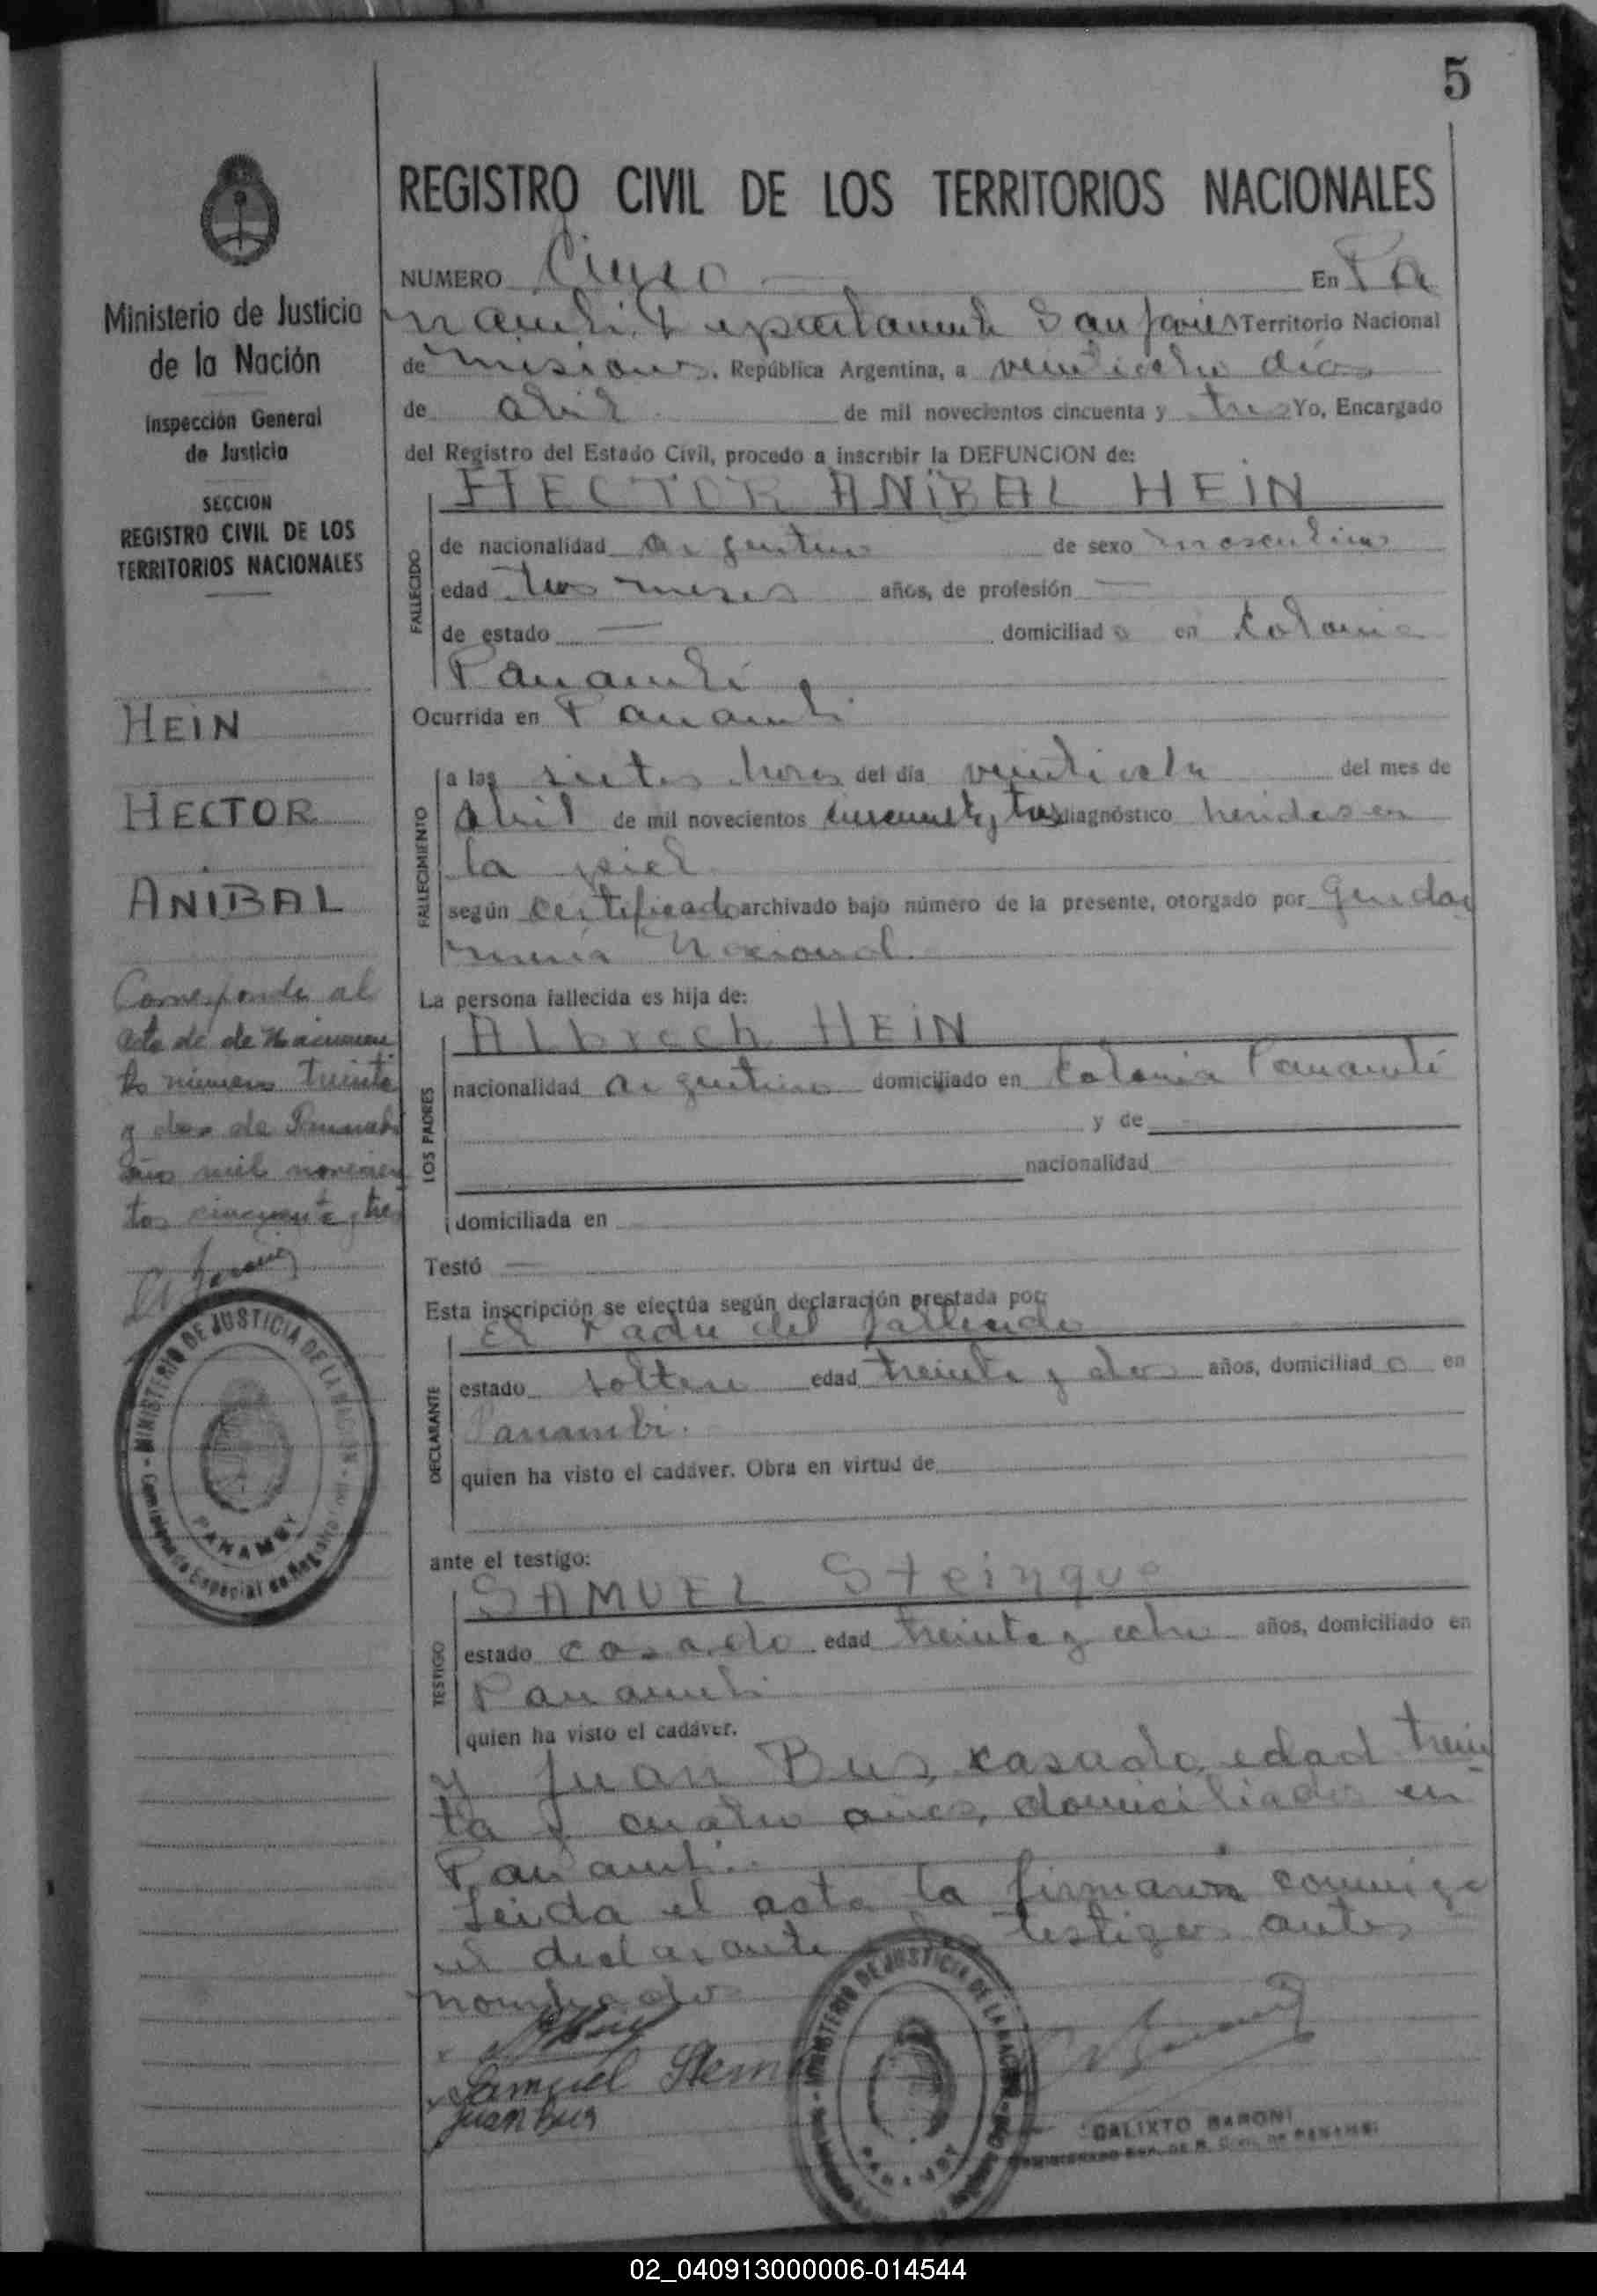 5
Ministerio de Justicia
de la Nación
Inspección General
de Justicia
SECCION
REGISTRO CIVIL DE LOS
TERRITORIOS NACIONALES
HEIN
HECTOR
ANIBAL
Corresponde al
acta de de Nacimien
to número treinta
y dos de Panambi
año mil novecien
tos cincuenta y tres
MINISTERIO DE JUSTICIA DE LA NACION
PANAMBY
REGISTRO CIVIL DE LOS TERRITORIOS NACIONALES
NUMERO Cinco — En Pa
nambi Departamento San Javier Territorio Nacional
de Misiones. República Argentina, a veintiocho días
de abril de mil novecientos cincuenta y tres Yo, Encargado
del Registro del Estado Civil, procedo a inscribir la DEFUNCION de:
HECTOR ANIBAL HEIN
FALLECIDO
de nacionalidad argentino de sexo masculino
edad tres meses años, de profesión —
de estado — domiciliado en Colonia
Panambí
Ocurrida en Panambi
FALLECIMIENTO
a las siete horas del día veintiocho del mes de
abril de mil novecientos cincuenta y tres diagnóstico heridas en
la piel
según certificado archivado bajo número de la presente, otorgado por Gendar
mería Nacional.
La persona fallecida es hija de:
Albrech HEIN
LOS PADRES
nacionalidad argentino domiciliado en Colonia Panambí
y de
nacionalidad
domiciliada en
Testó —
Esta inscripción se efectúa según declaración prestada por:
El Padre del fallecido
DECLARANTE
estado soltero edad treinta y dos años, domiciliado en
Panambi.
quien ha visto el cadáver. Obra en virtud de
ante el testigo:
SAMUEL Steinque
TESTIGO
estado casado edad treinta y ocho años, domiciliado en
Panambi
quien ha visto el cadáver.
y Juan Bus, casado, edad trein
ta y cuatro años, domiciliados en
Panambi.
Leida el acta la firmaron conmigo
el declarante testigos antes
nombrados
Samuel Stein
Juan bus
MINISTERIO DE JUSTICIA DE LA NACION
CALIXTO BARONI
02_040913000006-014544